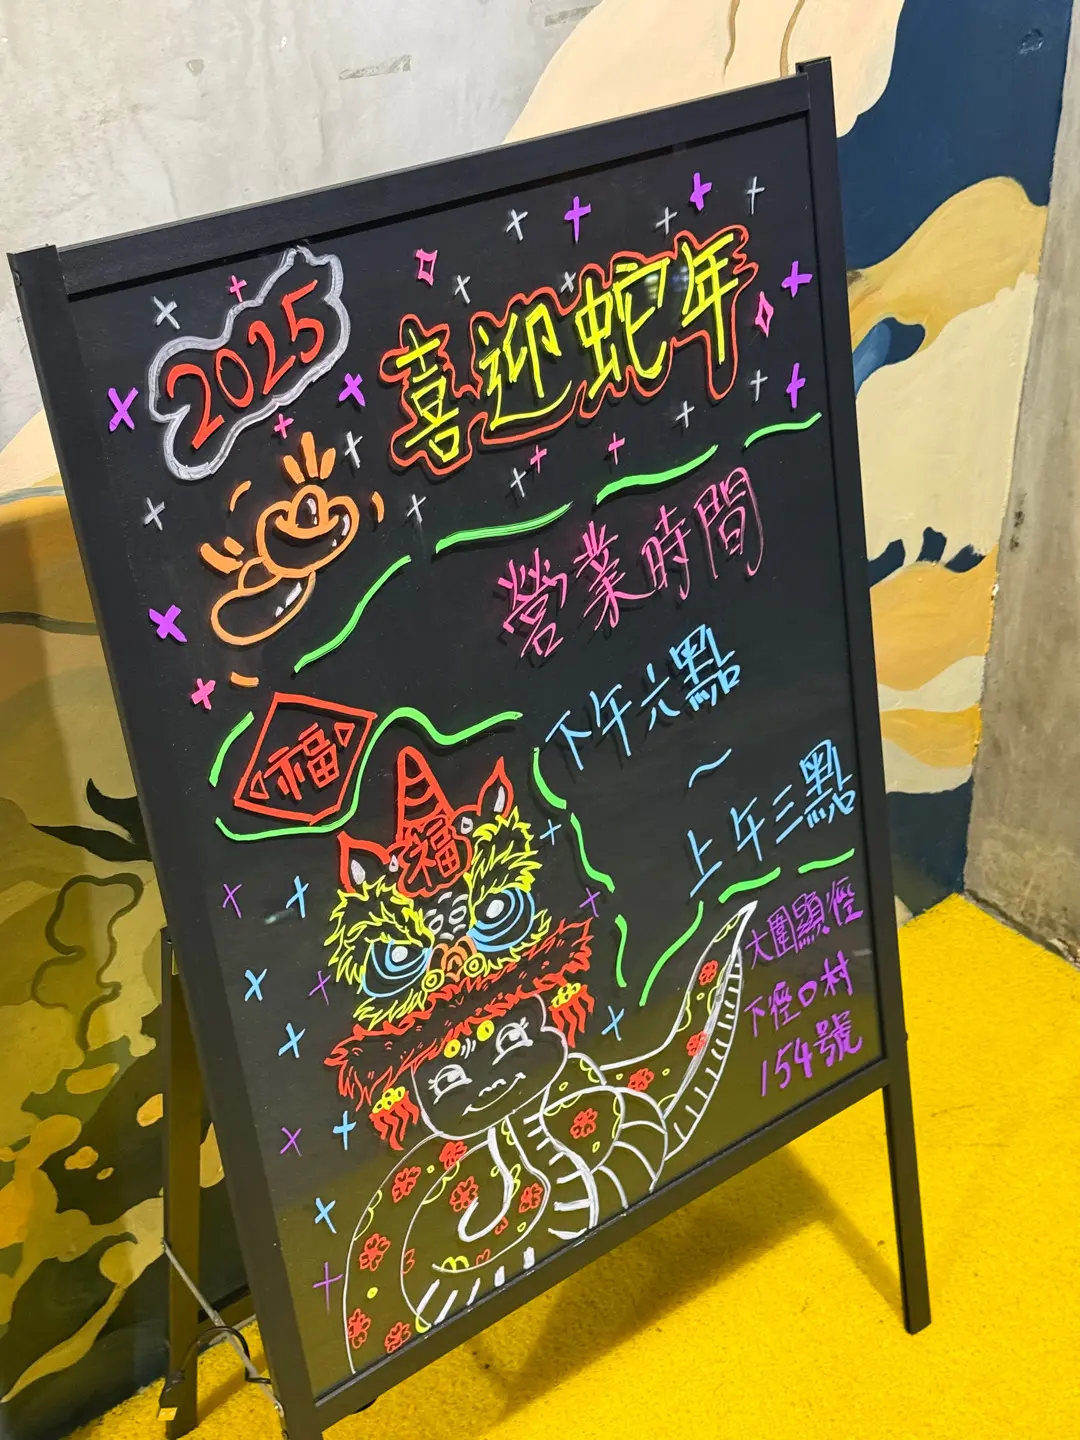 2025
喜迎蛇年
營業時間
下午六點
~
上午三點
福
福
大圍顯徑
下徑口村
154號